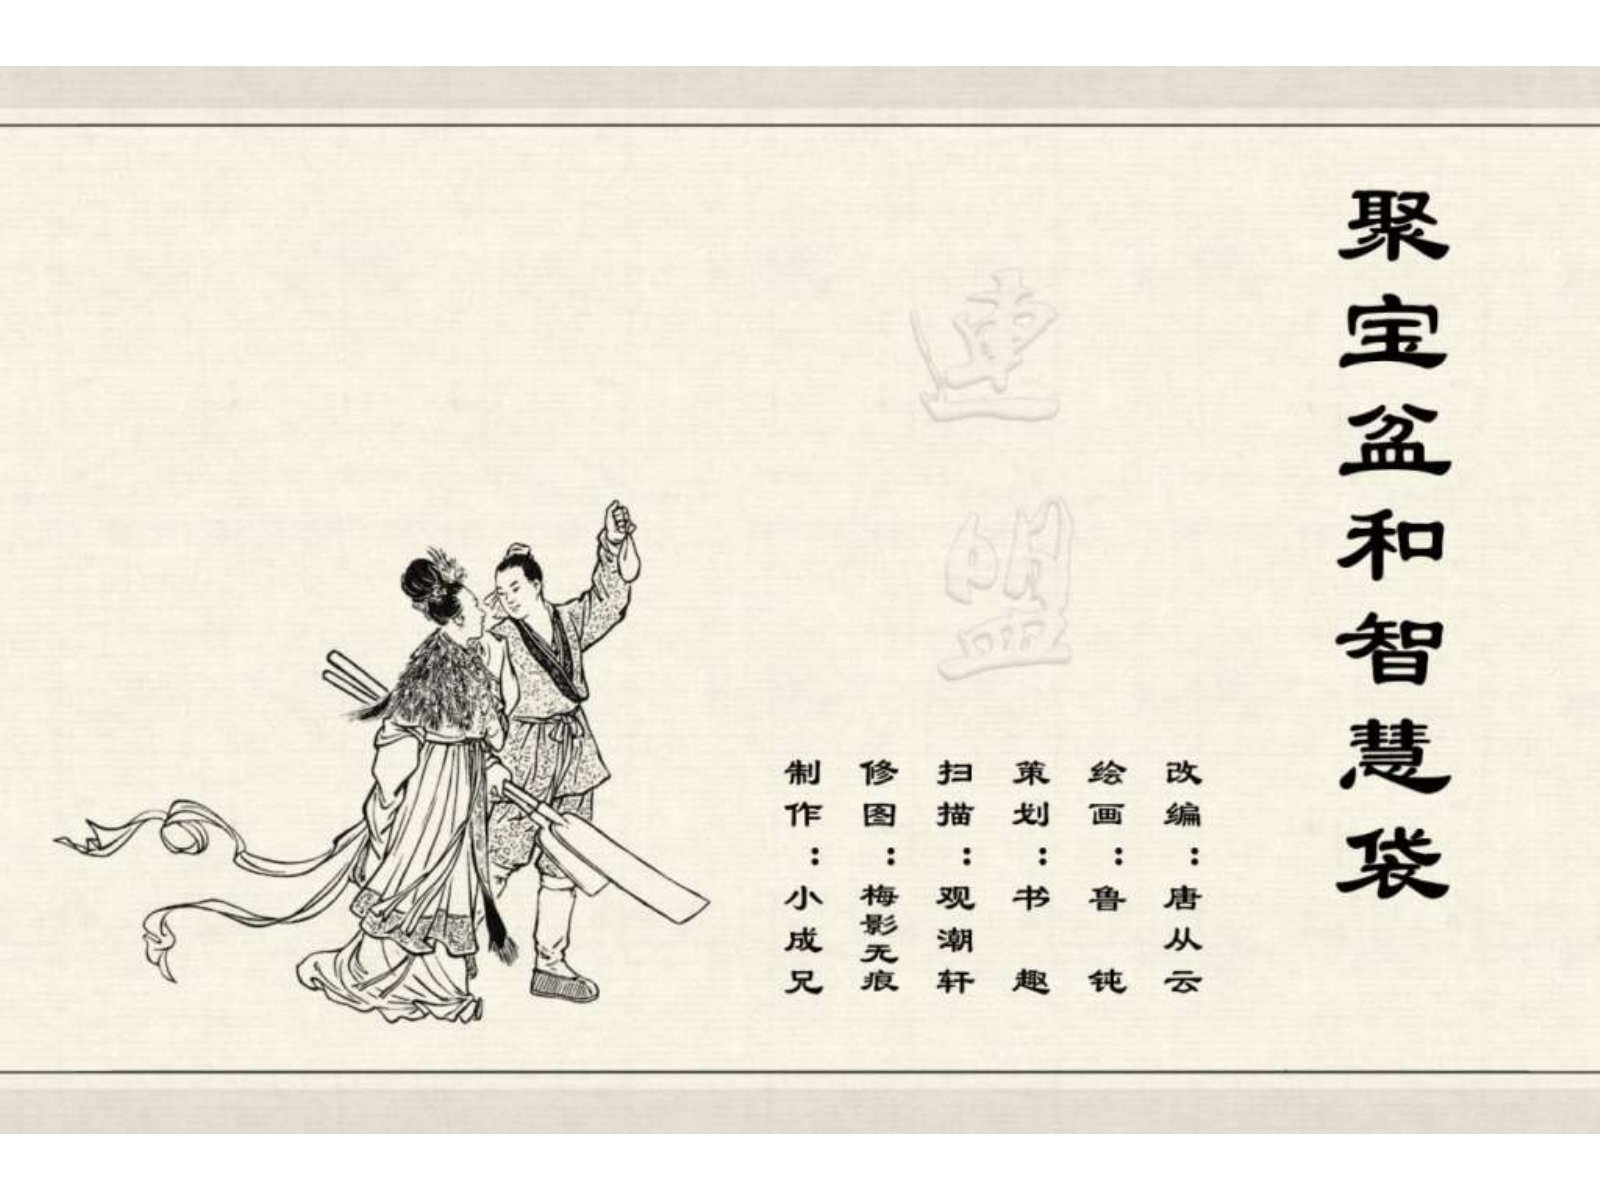 聚宝盆和智慧袋
改编：唐从云
绘画：鲁钝
策划：书趣
扫描：观潮轩
修图：梅影无痕
制作：小成兄
连盟